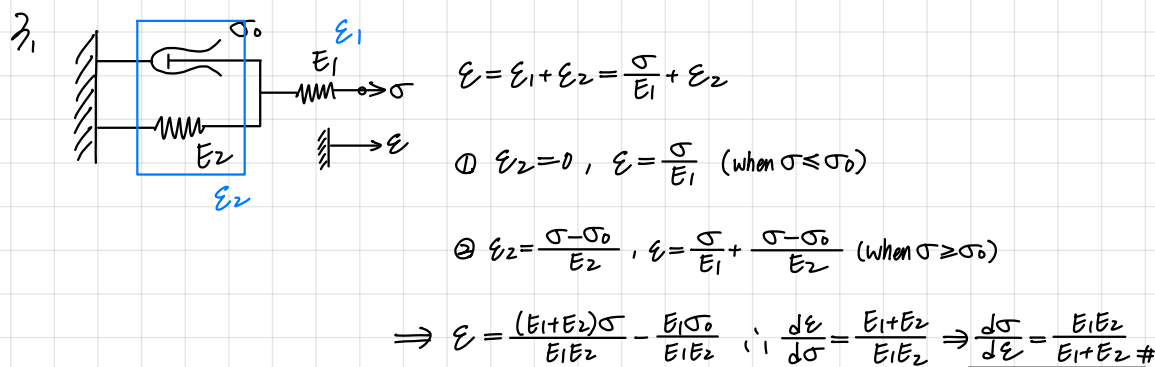 3,
σ₀
ε₁
E₁
σ
E₂
ε
ε₂
ε = ε₁ + ε₂ = σ/E₁ + ε₂
① ε₂ = 0 , ε = σ/E₁ (when σ ≤ σ₀)
② ε₂ = (σ-σ₀)/E₂ , ε = σ/E₁ + (σ-σ₀)/E₂ (when σ ≥ σ₀)
⇒ ε = (E₁+E₂)σ/E₁E₂ - E₁σ₀/E₁E₂ ∴ dε/dσ = (E₁+E₂)/E₁E₂ ⇒ dσ/dε = E₁E₂/(E₁+E₂) #